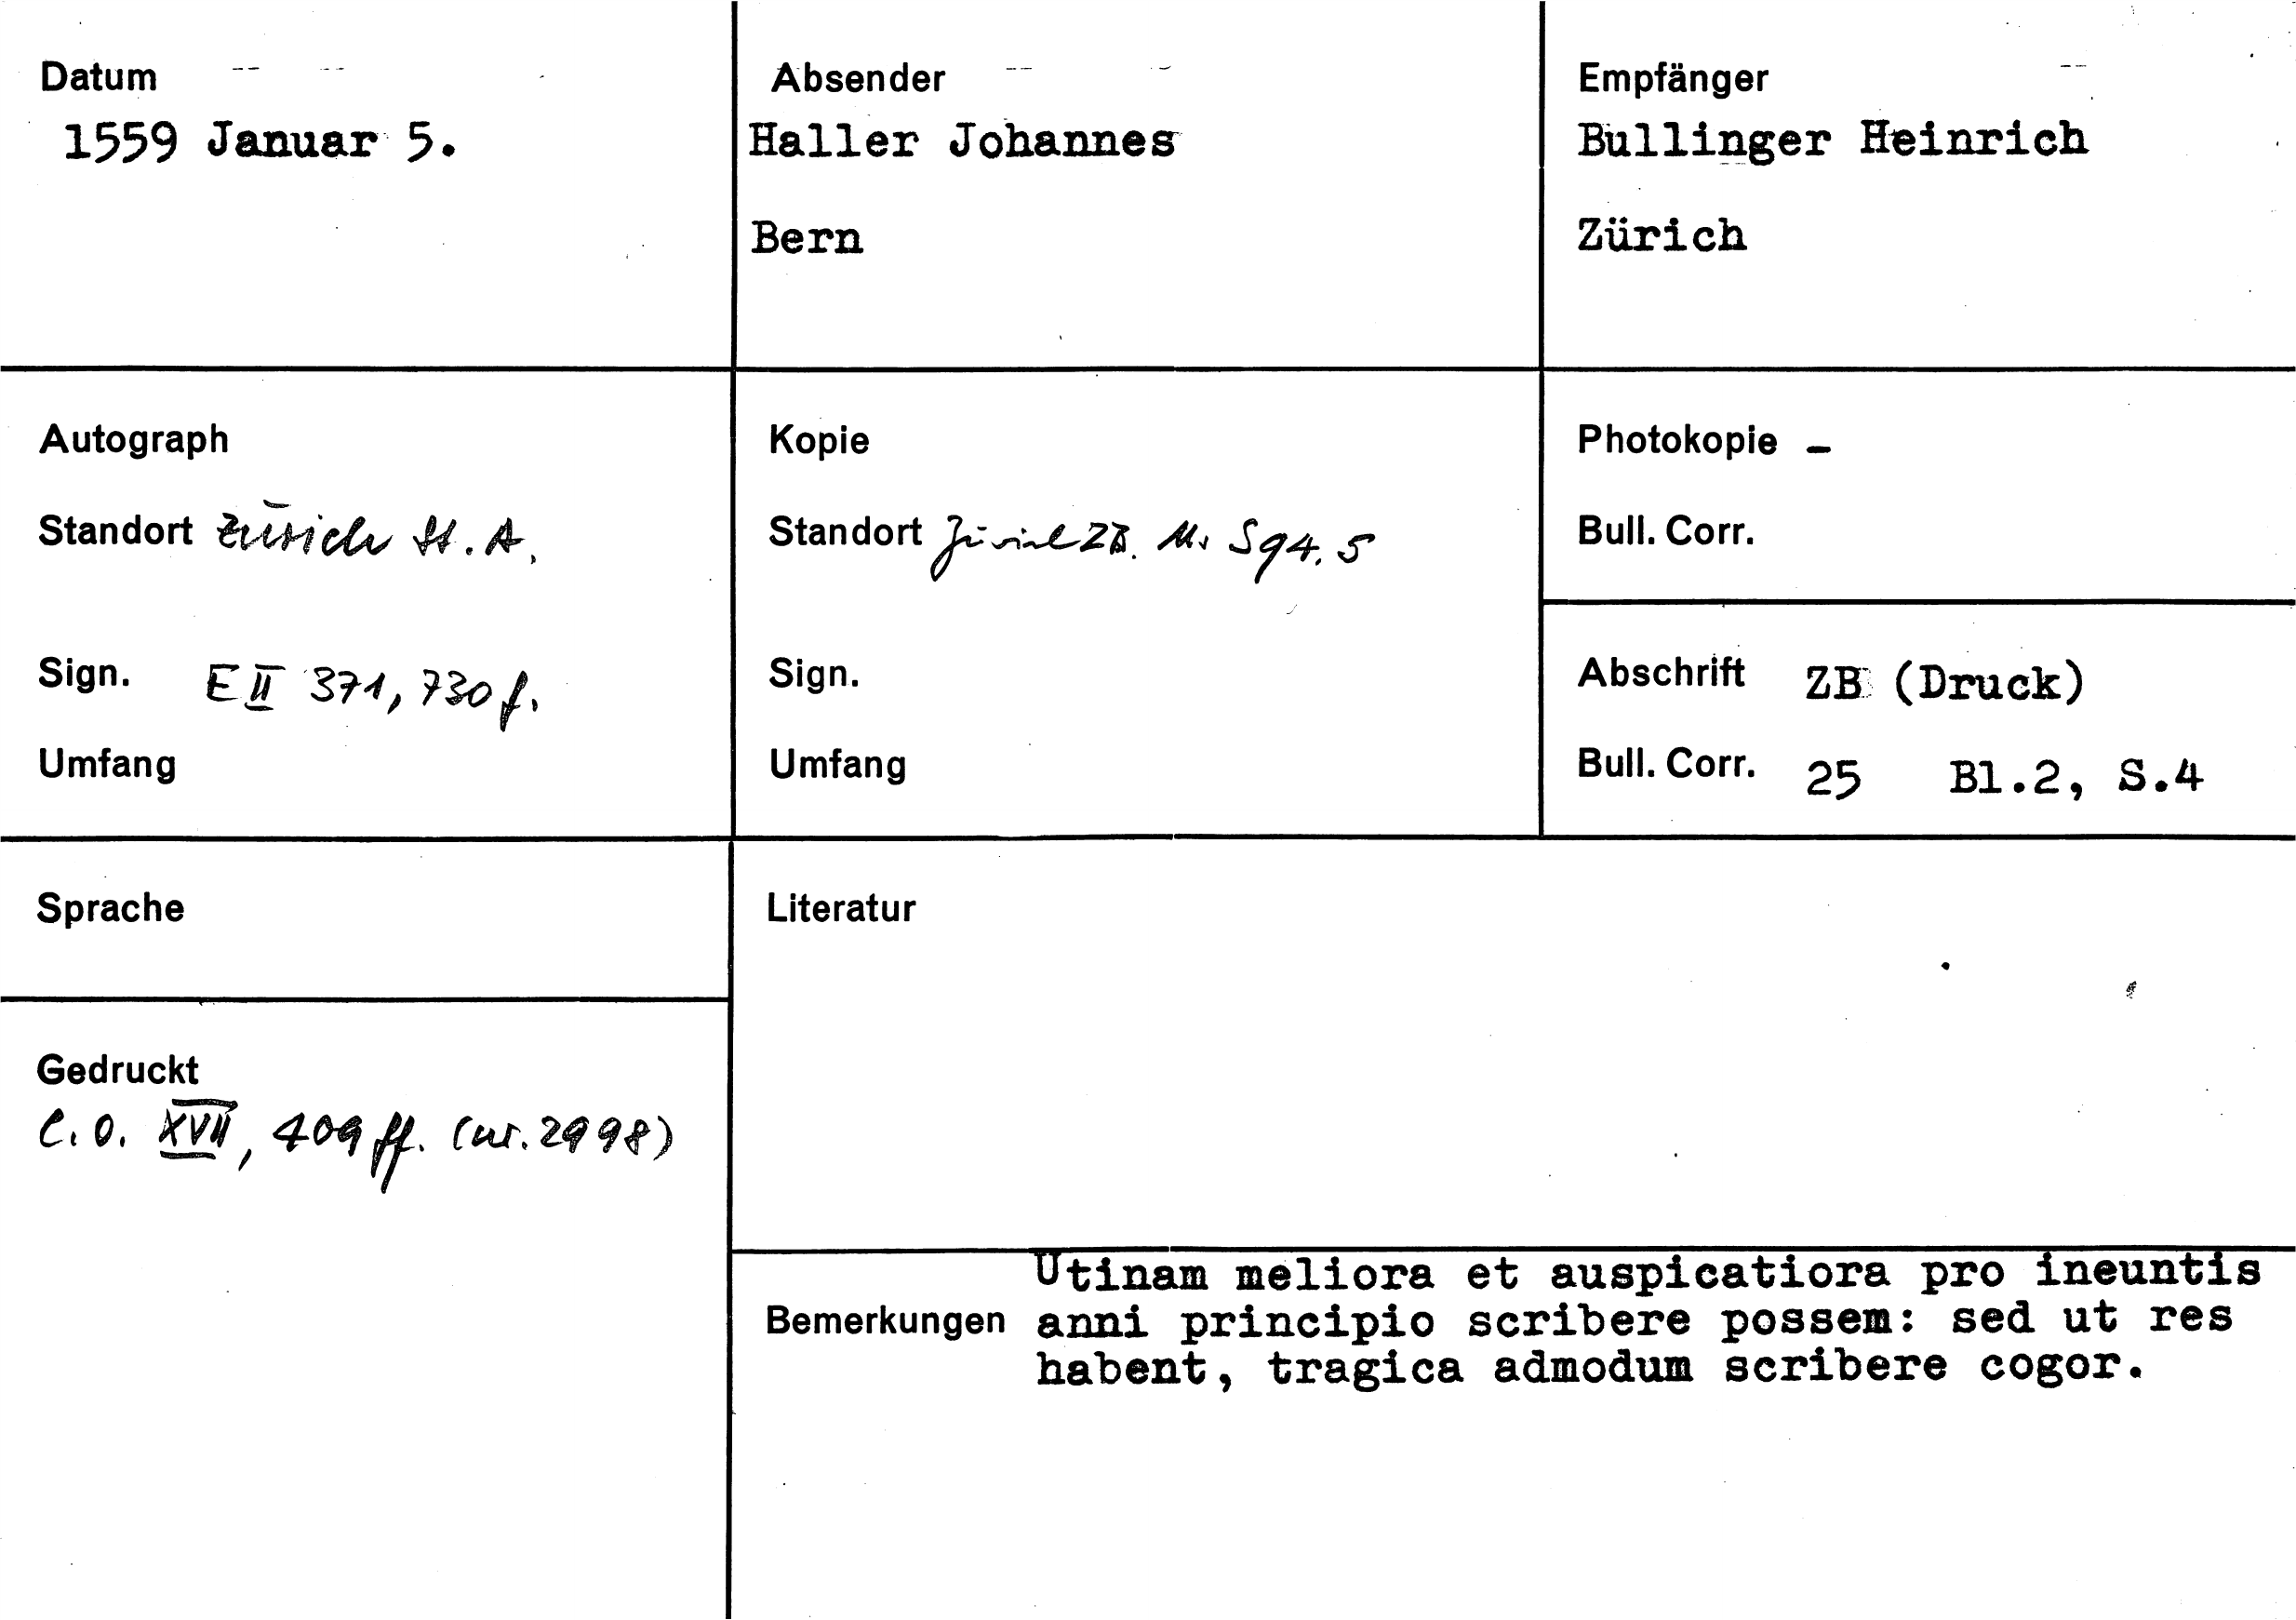 Datum
1559 Januar 5.
Absender
Haller Johannes
Bern
Empfänger
Bullinger Heinrich
Zürich
Autograph
Standort Zürich St. A.
Sign. E II 371, 730 f.
Umfang
Kopie
Standort Zürich ZB. Ms S 94. 5
Sign.
Umfang
Photokopie -
Bull. Corr.
Abschrift ZB (Druck)
Bull. Corr. 25 Bl.2, S.4
Sprache
Literatur
Gedruckt
C. O. XVII, 409 ff. (nr. 2998)
Bemerkungen
Utinam meliora et auspicatiora pro ineuntis
anni principio scribere possem: sed ut res
habent, tragica admodum scribere cogor.